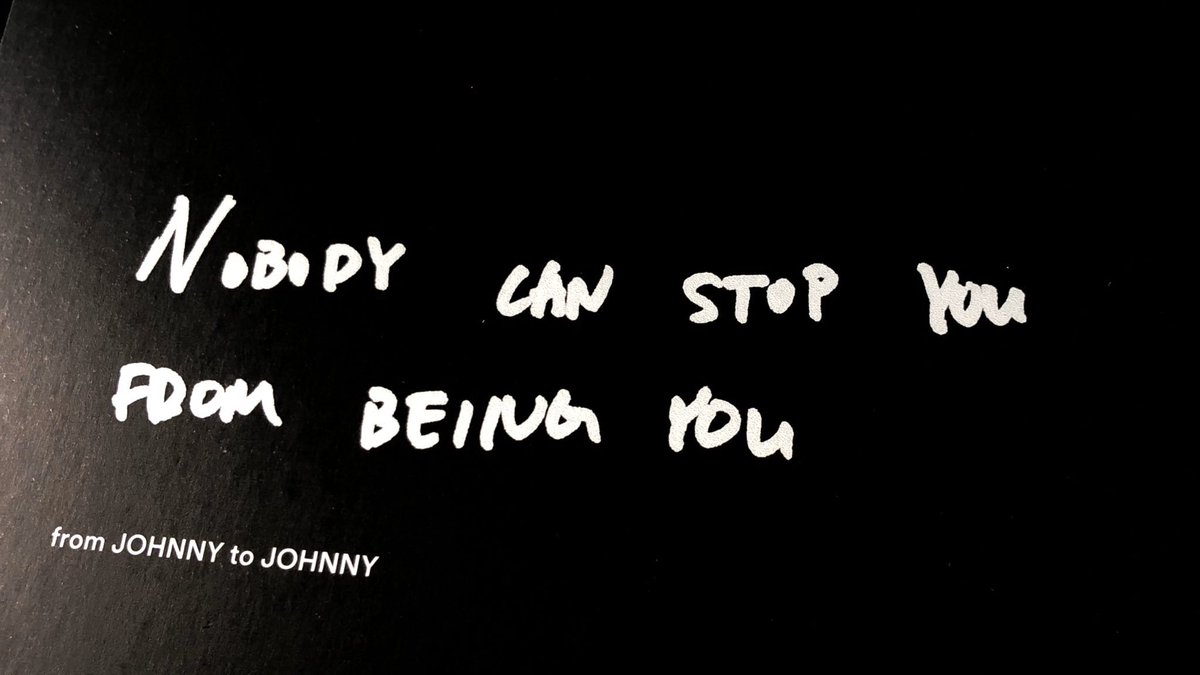 NOBODY CAN STOP YOU
FROM BEING YOU
from JOHNNY to JOHNNY